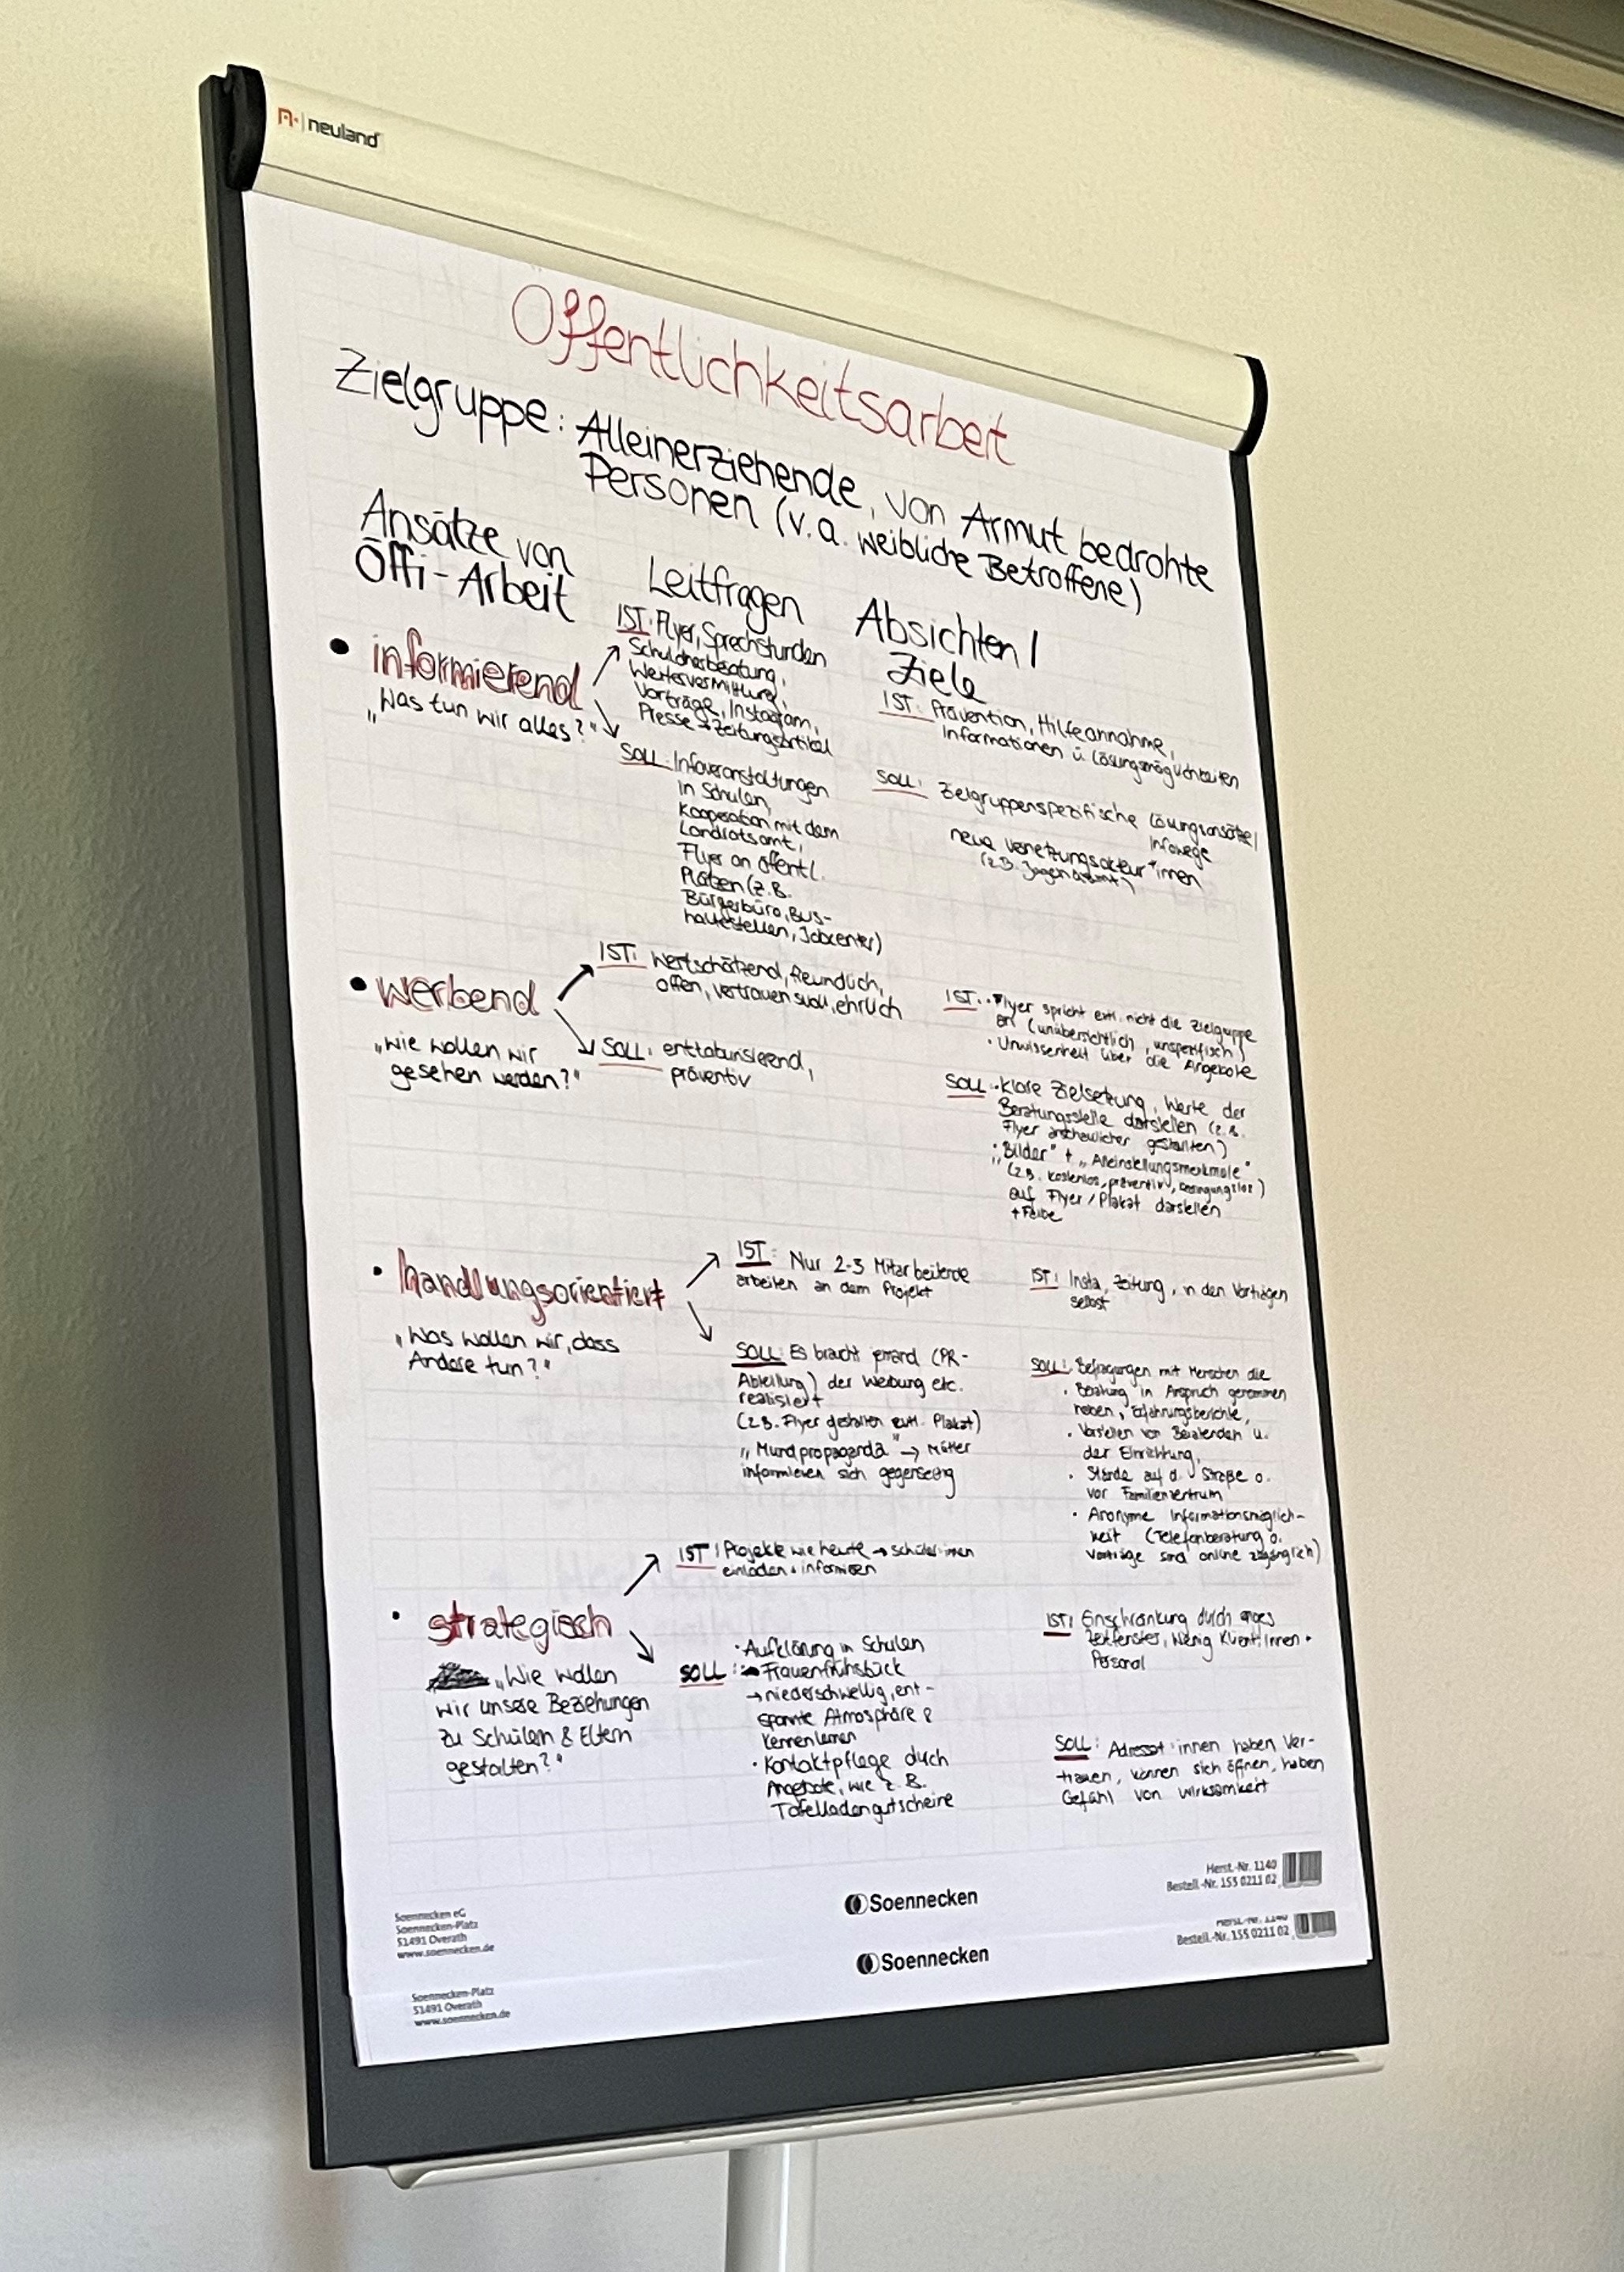 neuland
Öffentlichkeitsarbeit
Zielgruppe: Alleinerziehende, von Armut bedrohte
Personen (v.a. weibliche Betroffene)
Ansätze von
Öffi-Arbeit
Leitfragen
Absichten/
Ziele
• informierend
"Was tun wir alles?"
IST: Flyer, Sprechstunden
Schuldnerberatung,
Wertevermittlung,
Vorträge, Instagram,
Presse → Zeitungsartikel
SOLL: Infoveranstaltungen
in Schulen,
Kooperation mit dem
Landratsamt,
Flyer an öffentl.
Plätzen (z.B.
Bürgerbüro, Bus-
haltestellen, Jobcenter)
IST: Prävention, Hilfeannahme,
Informationen ü. Lösungsmöglichkeiten
SOLL: Zielgruppenspezifische Lösungsansätze/
Infowege
neue Vernetzungsakteur*innen
(z.B. Jugendamt)
• werbend
"Wie wollen wir
gesehen werden?"
IST: Wertschätzend, freundlich,
offen, vertrauensvoll, ehrlich
SOLL: enttabuisierend,
präventiv
IST: • Flyer spricht evtl. nicht die Zielgruppe
an (unübersichtlich, unspezifisch)
• Unwissenheit über die Angebote
SOLL: • Klare Zielsetzung, Werte der
Beratungsstelle darstellen (z.B.
Flyer anschaulicher gestalten)
• "Bilder" + "Alleinstellungsmerkmale"
(z.B. kostenlos, präventiv, bedingungslos)
auf Flyer/Plakat darstellen
+ Farbe
• handlungsorientiert
"Was wollen wir, dass
Andere tun?"
IST: Nur 2-3 Mitarbeitende
arbeiten an dem Projekt
SOLL: Es braucht jemand (PR-
Abteilung) der Werbung etc.
realisiert
(z.B. Flyer gestalten evtl. Plakat)
"Mundpropaganda" → Mütter
informieren sich gegenseitig
IST: Insta, Zeitung, in den Vorträgen
selbst
SOLL: Befragungen mit Menschen die
• Beratung in Anspruch genommen
haben, Erfahrungsberichte,
• Vorstellen von Beratenden u.
der Einrichtung,
• Stände auf d. Straße o.
vor Familienzentrum
• Anonyme Informationsmöglich-
keit (Telefonberatung o.
Vorträge sind online zugänglich)
• strategisch
"Wie wollen
wir unsere Beziehungen
zu Schülern & Eltern
gestalten?"
IST: Projekte wie heute → Schüler:innen
einladen + informieren
• Aufklärung in Schulen
SOLL: • Frauenfrühstück
→ niederschwellig, ent-
spannte Atmosphäre &
Kennenlernen
• Kontaktpflege duch
Angebote, wie z.B.
Tafelladengutscheine
IST: Einschränkung durch enges
Zeitfenster, Wenig Klient:innen +
Personal
SOLL: Adressat*innen haben Ver-
trauen, können sich öffnen, haben
Gefühl von Wirksamkeit
Herst.-Nr. 1140
Bestell.-Nr. 155 0211 02
Soennecken
Soennecken eG
Soennecken-Platz
51491 Overath
www.soennecken.de
Bestell.-Nr. 155 0211 02
Soennecken
Soennecken-Platz
51491 Overath
www.soennecken.de